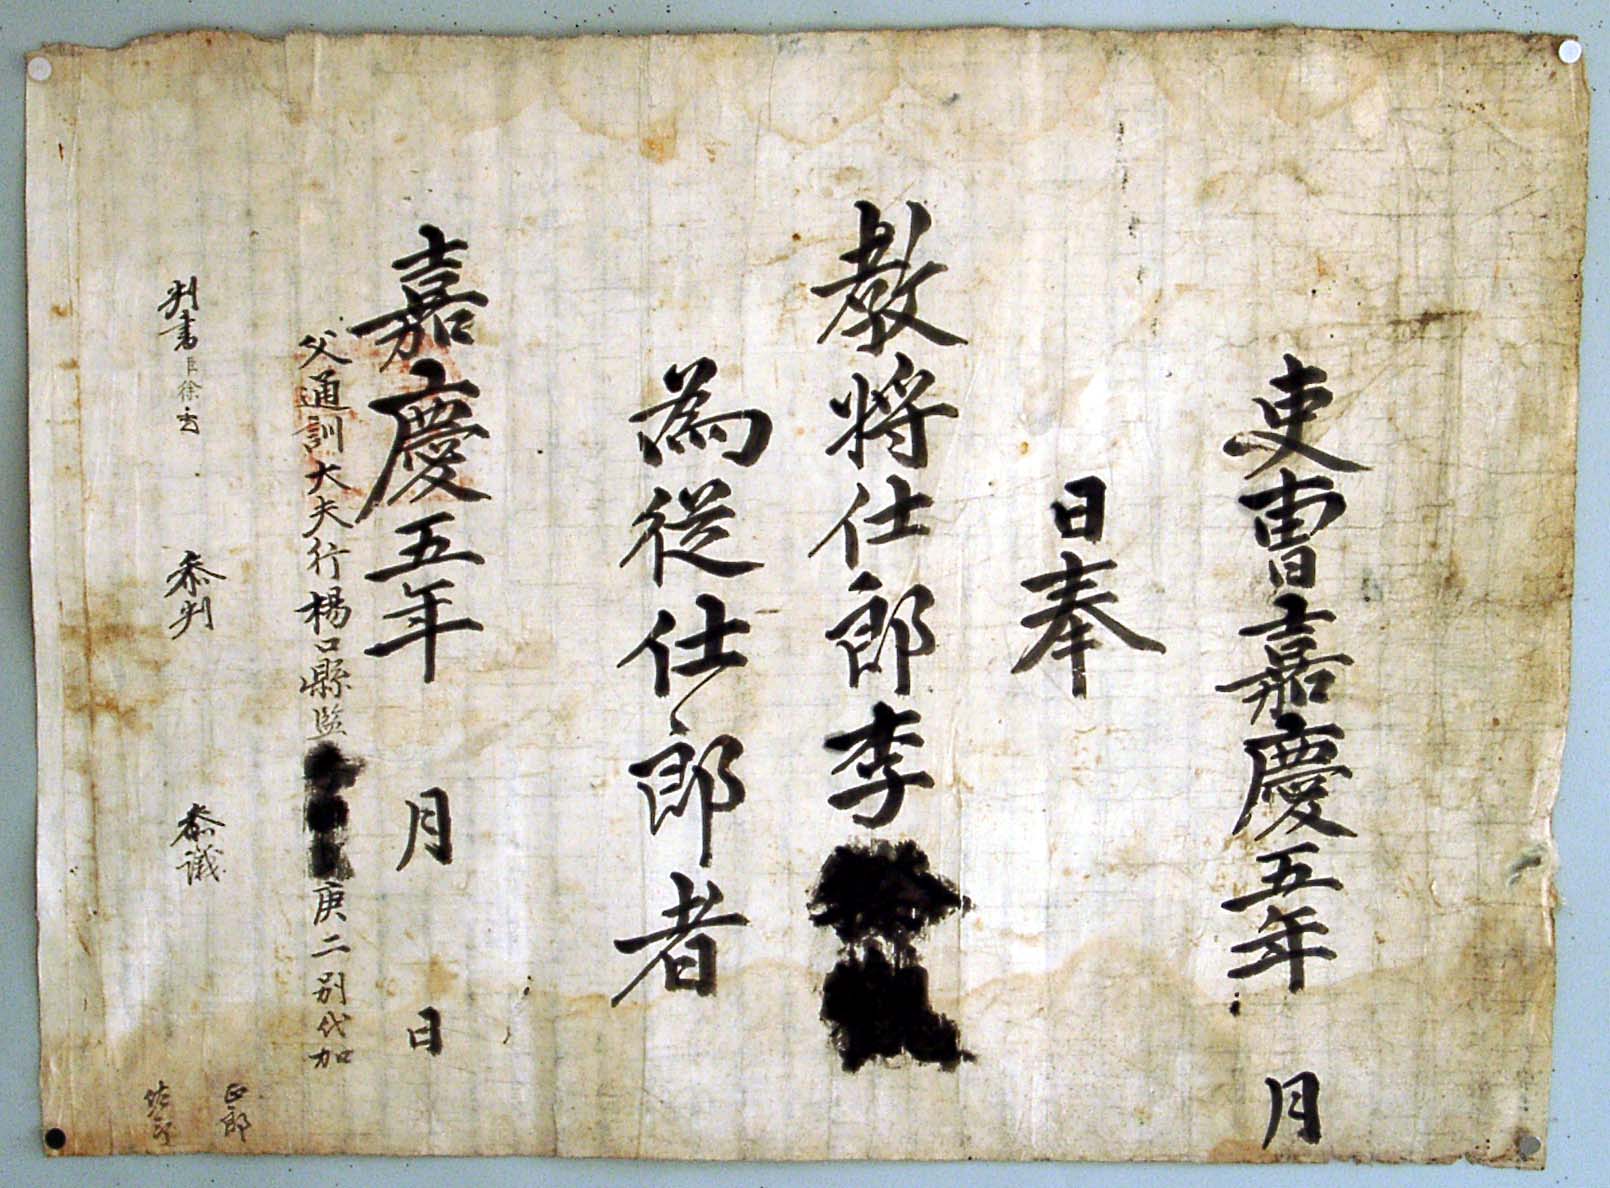 吏曹嘉慶五年 月
日奉
教将仕郎李
為從仕郎者
嘉慶五年 月 日
父通訓大夫行楊口縣監 庚二別代加
判書臣徐 叅判 叅議
正郎
佐郎